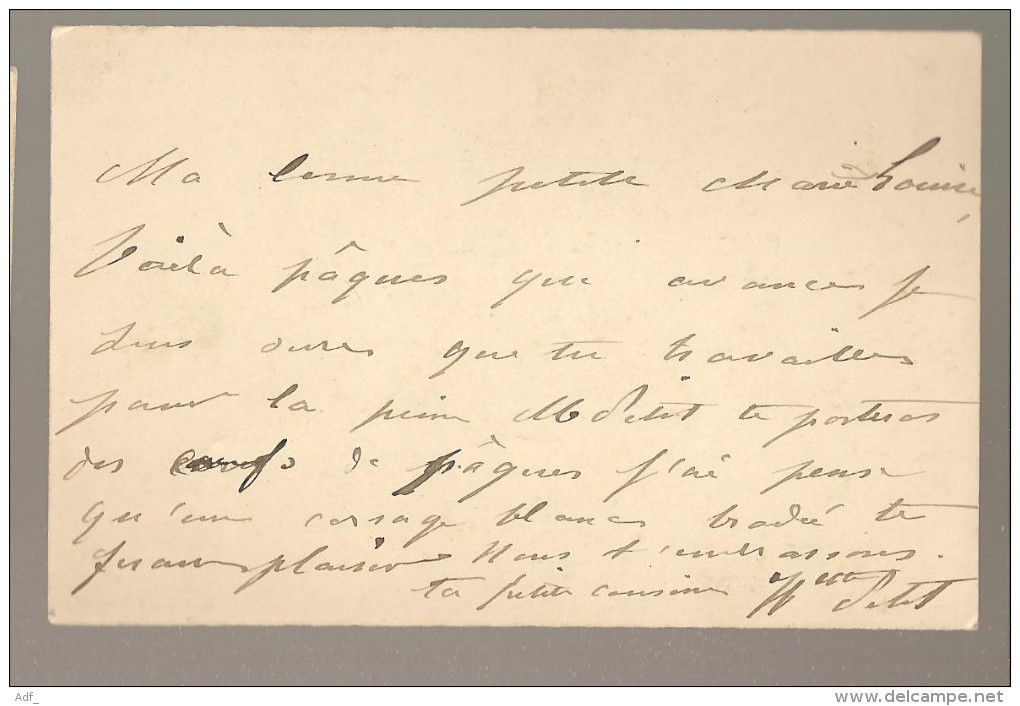 Ma bonne petite Marie Louise,
Voilà pâques qui avances je
suis sures que tu travailles
pour la peine M Petit te porteras
des oeufs de pâques j'ai pense
qu'une corsage blancs brodée te
feraus plaisir Nous t'embrassons.
ta petite cousine Petit
Adf_
www.delcampe.net